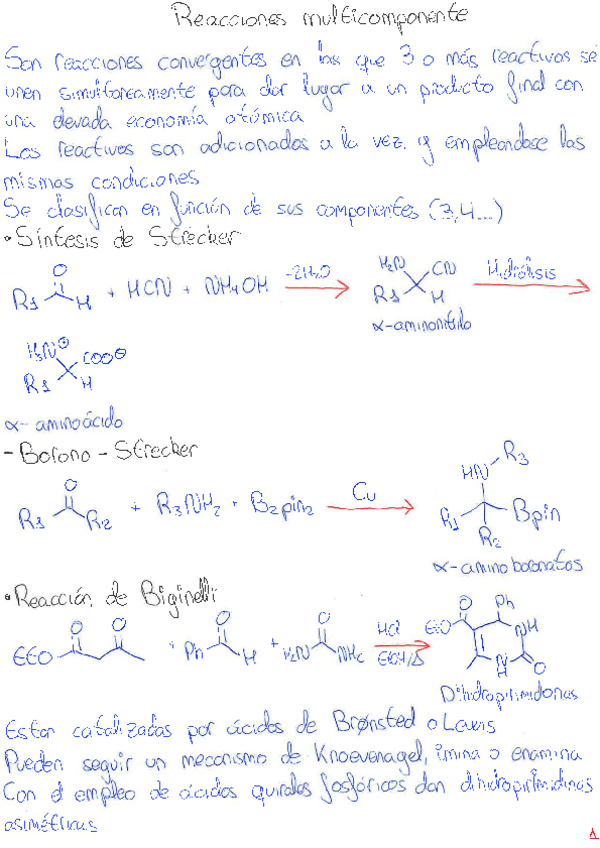 Reacciones multicomponente
Son reacciones convergentes en las que 3 o más reactivos se
unen simultáneamente para dar lugar a un producto final con
una elevada economía atómica
Los reactivos son adicionados a la vez y empleandose las
mismas condiciones
Se clasifican en función de sus componentes (3,4...)
• Síntesis de Strecker
R1 O H + HCN + NH4OH -2H2O H2N CN R1 H Hidrólisis
α-aminonitrilo
H3N⊕ COO⊖ R1 H
α-aminoácido
- Borono-Strecker
R1 O R2 + R3NH2 + B2pin2 Cu HN R3 R1 Bpin R2
α-amino boronatos
• Reacción de Biginelli
EtO O O + Ph O H + H2N O NH2 HCl EtOH/Δ EtO O Ph NH N H O
Dihidropirimidonas
Estan catalizadas por ácidos de Brønsted o Lewis
Pueden seguir un mecanismo de Knoevenagel, imina o enamina
Con el empleo de ácidos quirales fosfóricos dan dihidropirimidinas
asimétricas
1